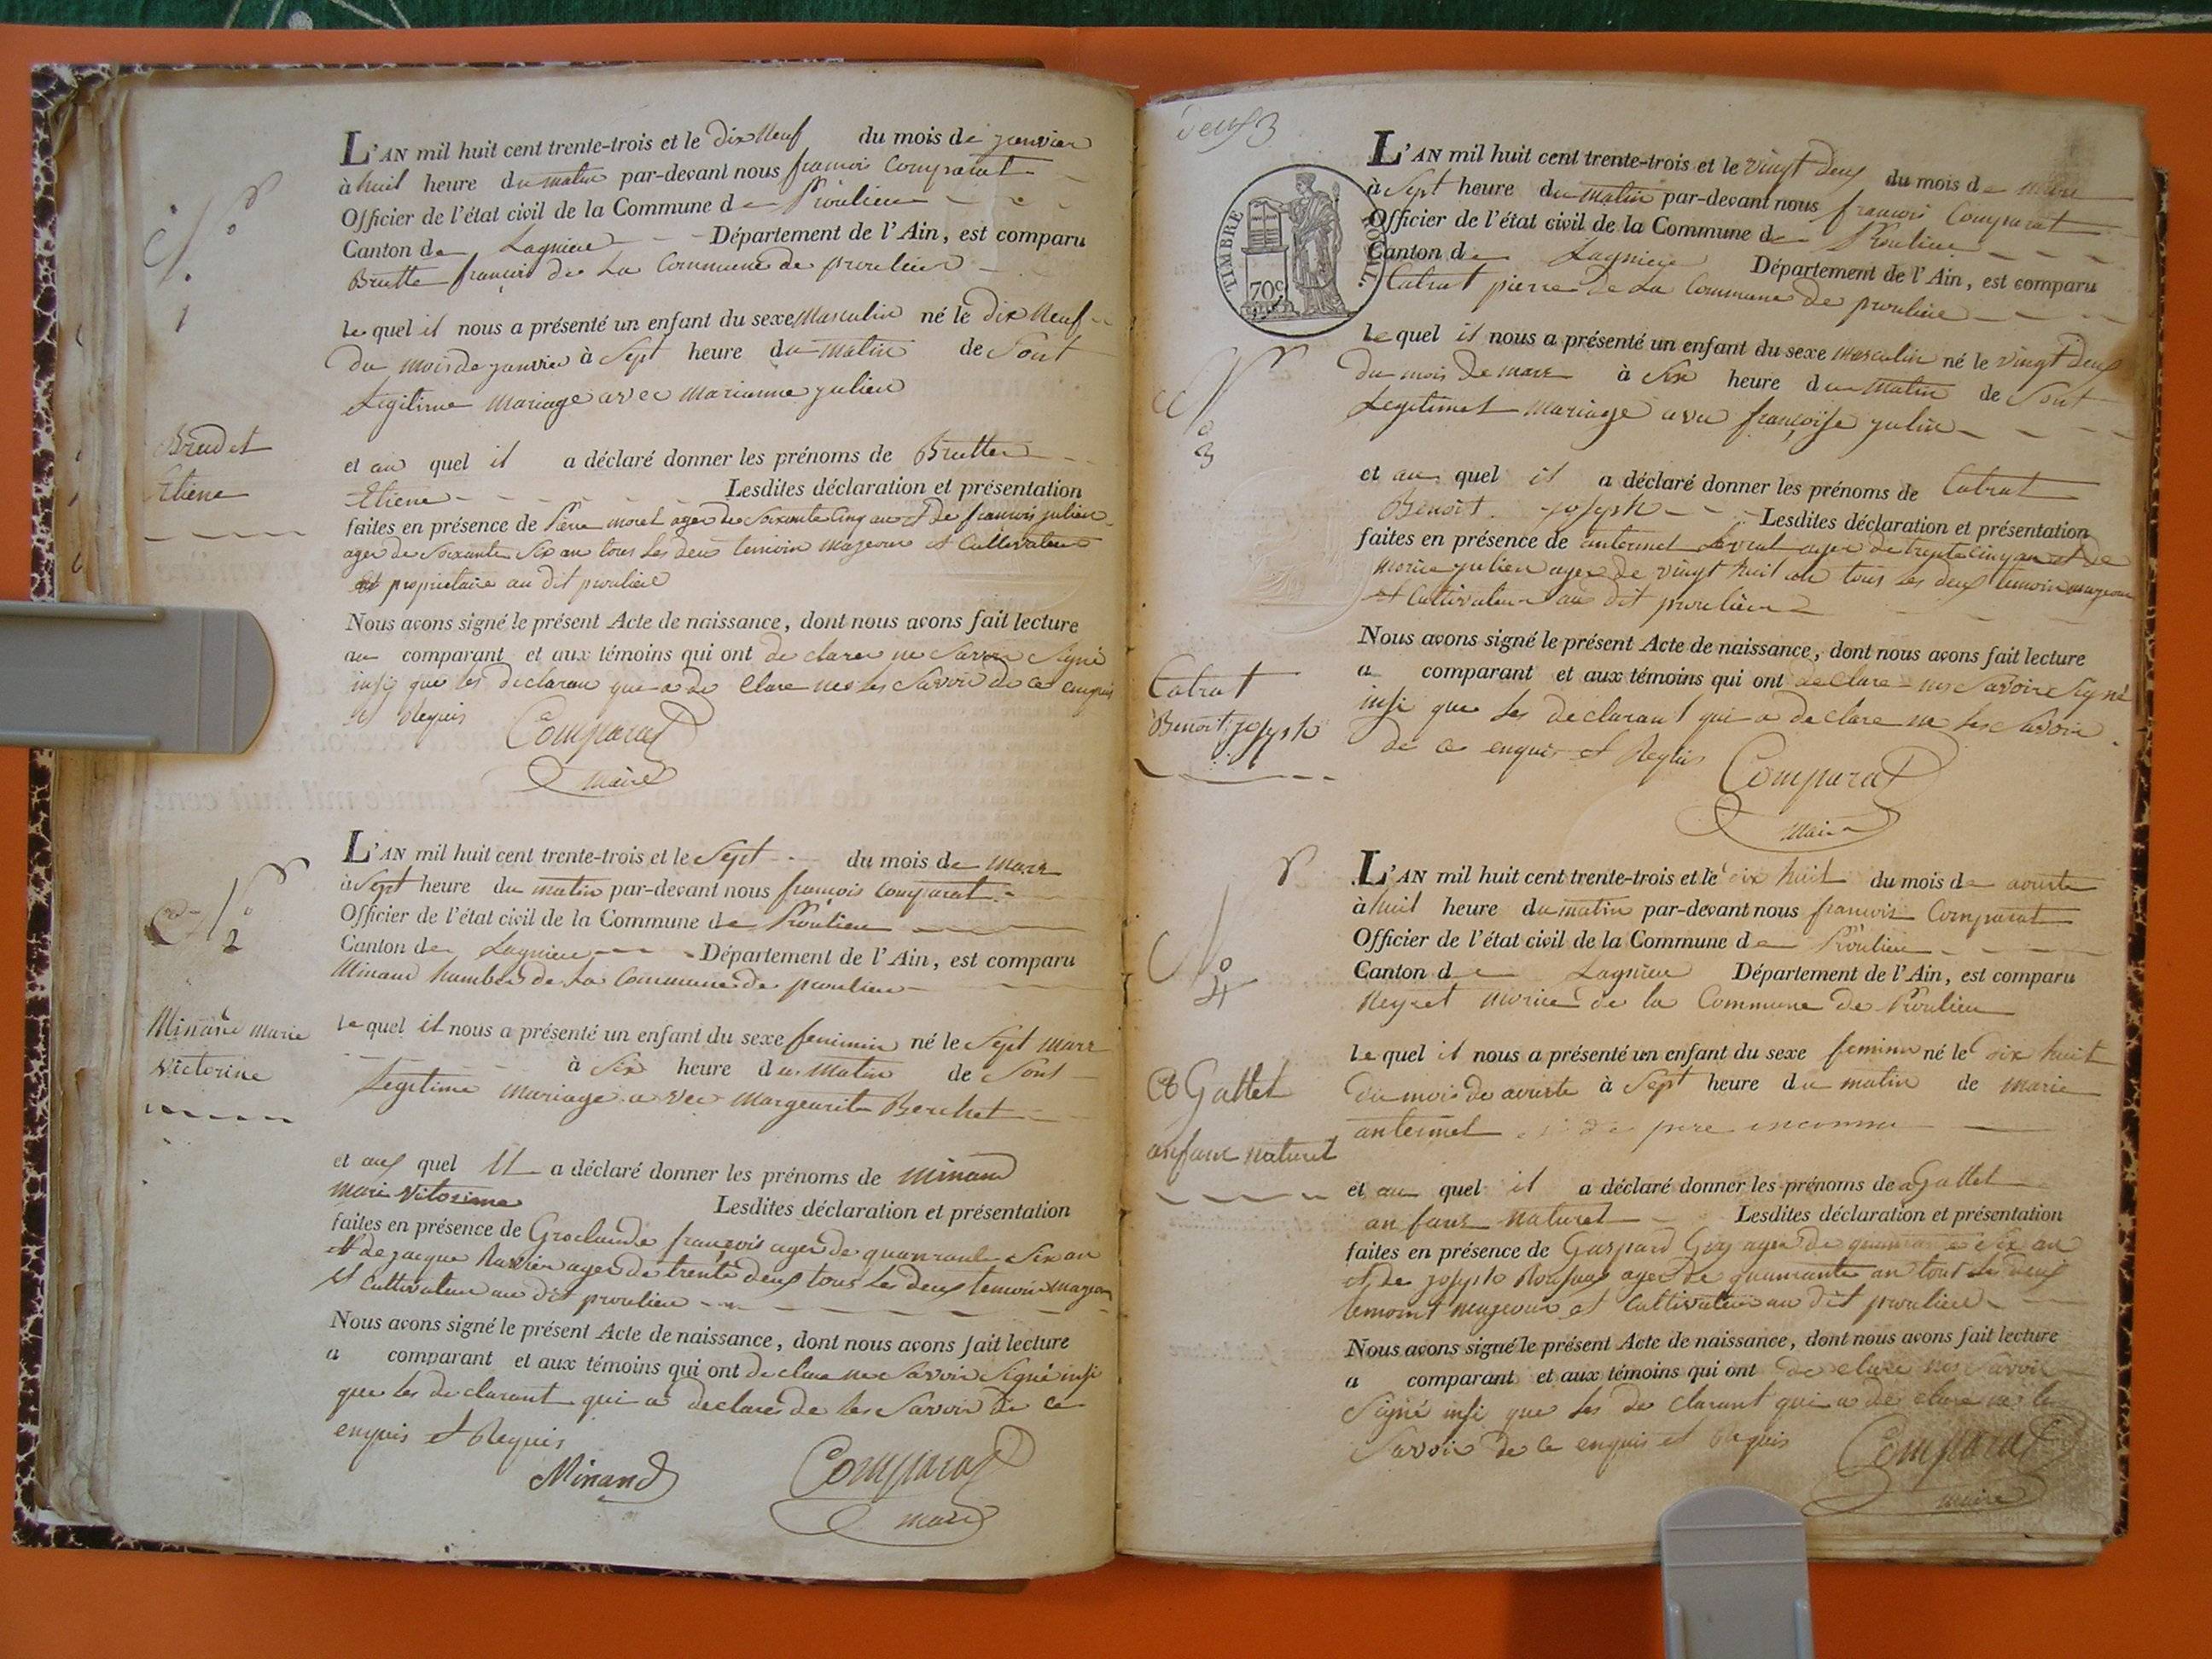 N°
1
Brudet
Etiene
L'AN mil huit cent trente-trois et le dix Neuf du mois de janvier
à huit heure du matin par-devant nous francois Comparat
Officier de l'état civil de la Commune de Proulieu
Canton de Lagnieu Département de l'Ain, est comparu
Brutte françois de La Commune de proulieu
Le quel il nous a présenté un enfant du sexe Masculin né le dix Neuf
du mois de janvier à Sept heure du matin de Sont
Legitime mariage avec marianne julien
et au quel il a déclaré donner les prénoms de Brutte
Etiene Lesdites déclaration et présentation
faites en présence de Piere moret ager de Soixante Cinq an et de francois julien
ager de Soixante Six an tous Les deu temoin majeour et Cultivateur
et proprietaire au dit proulieu
Nous avons signé le présent Acte de naissance, dont nous avons fait lecture
au comparant et aux témoins qui ont de clarer ne Savoir Signé
insij que les declaran que a de Clare ne les Savoir de ce enquis
et Requis
Comparat
maire
N°
2
Minand marie
victorine
L'AN mil huit cent trente-trois et le Sept du mois de mars
à Sept heure du matin par-devant nous francois Comparat
Officier de l'état civil de la Commune de Proulieu
Canton de Lagnieu Département de l'Ain, est comparu
Minand humber de La Commune de proulieu
Le quel il nous a présenté un enfant du sexe feminin né le Sept mars
à Six heure du Matin de Sont
Legitime mariage a vec margeurite Berchet
et auf quel Il a déclaré donner les prénoms de Minand
mari vitorine Lesdites déclaration et présentation
faites en présence de Groclaude françois ager de quanrante Six an
et de jacque Ravier ager de trente deuf tous Les deuf temoin majeour
et Cultivateur au dit proulieu
Nous avons signé le présent Acte de naissance, dont nous avons fait lecture
a comparant et aux témoins qui ont de clare ne Savoir Signé insi
que les de clarant qui a declare de les Savoir de ce
enquis et Requis
Minand Comparat
maire
deuf 3
TIMBRE ROYAL.
70c
N°
3
Catrat
Benoit josyph
L'AN mil huit cent trente-trois et le vingt deuf du mois de mars
à Sept heure du matin par-devant nous francois Comparat
Officier de l'état civil de la Commune de Proulieu
Canton de Lagnieu Département de l'Ain, est comparu
Catrat pierre de La Commune de proulieu
Le quel il nous a présenté un enfant du sexe masculin né le vingt deuf
du mois de mars à Six heure du matin de Sont
Legitimet mariage avec françoise julien
et au quel il a déclaré donner les prénoms de Catrat
Benoit josyph Lesdites déclaration et présentation
faites en présence de antermet ager de trente Cinq an et de
morice julien ager de vingt huit an tous les deuf temoin majeour
et Cultivateur au dit proulieu
Nous avons signé le présent Acte de naissance, dont nous avons fait lecture
a comparant et aux témoins qui ont declare ne Savoire Signé
insi que les declarant qui a declare ne les Savoir
de ce enquis et Requis
Comparat
maire
N°
4
A Gattet
anfant naturet
L'AN mil huit cent trente-trois et le dix huit du mois de aouste
à huit heure du matin par-devant nous francois Comparat
Officier de l'état civil de la Commune de Proulieu
Canton de Lagnieu Département de l'Ain, est comparu
Neyret morice de la Commune de Proulieu
Le quel il nous a présenté un enfant du sexe feminin né le dix huit
du mois de aouste à Sept heure du matin de marie
antermet de pere inconnu
et au quel il a déclaré donner les prénoms de aGattet
anfant naturet Lesdites déclaration et présentation
faites en présence de Gaspard Guy ager de quanrante Six an
et de josyph ager de quanrante an tout les deuf
temoint majeour et Cultivateur au dit proulieu
Nous avons signé le présent Acte de naissance, dont nous avons fait lecture
a comparant et aux témoins qui ont de clare ne Savoir
Signé insi que les de clarant qui a de clare ne le
Savoir de ce enquis et Requis
Comparat
maire